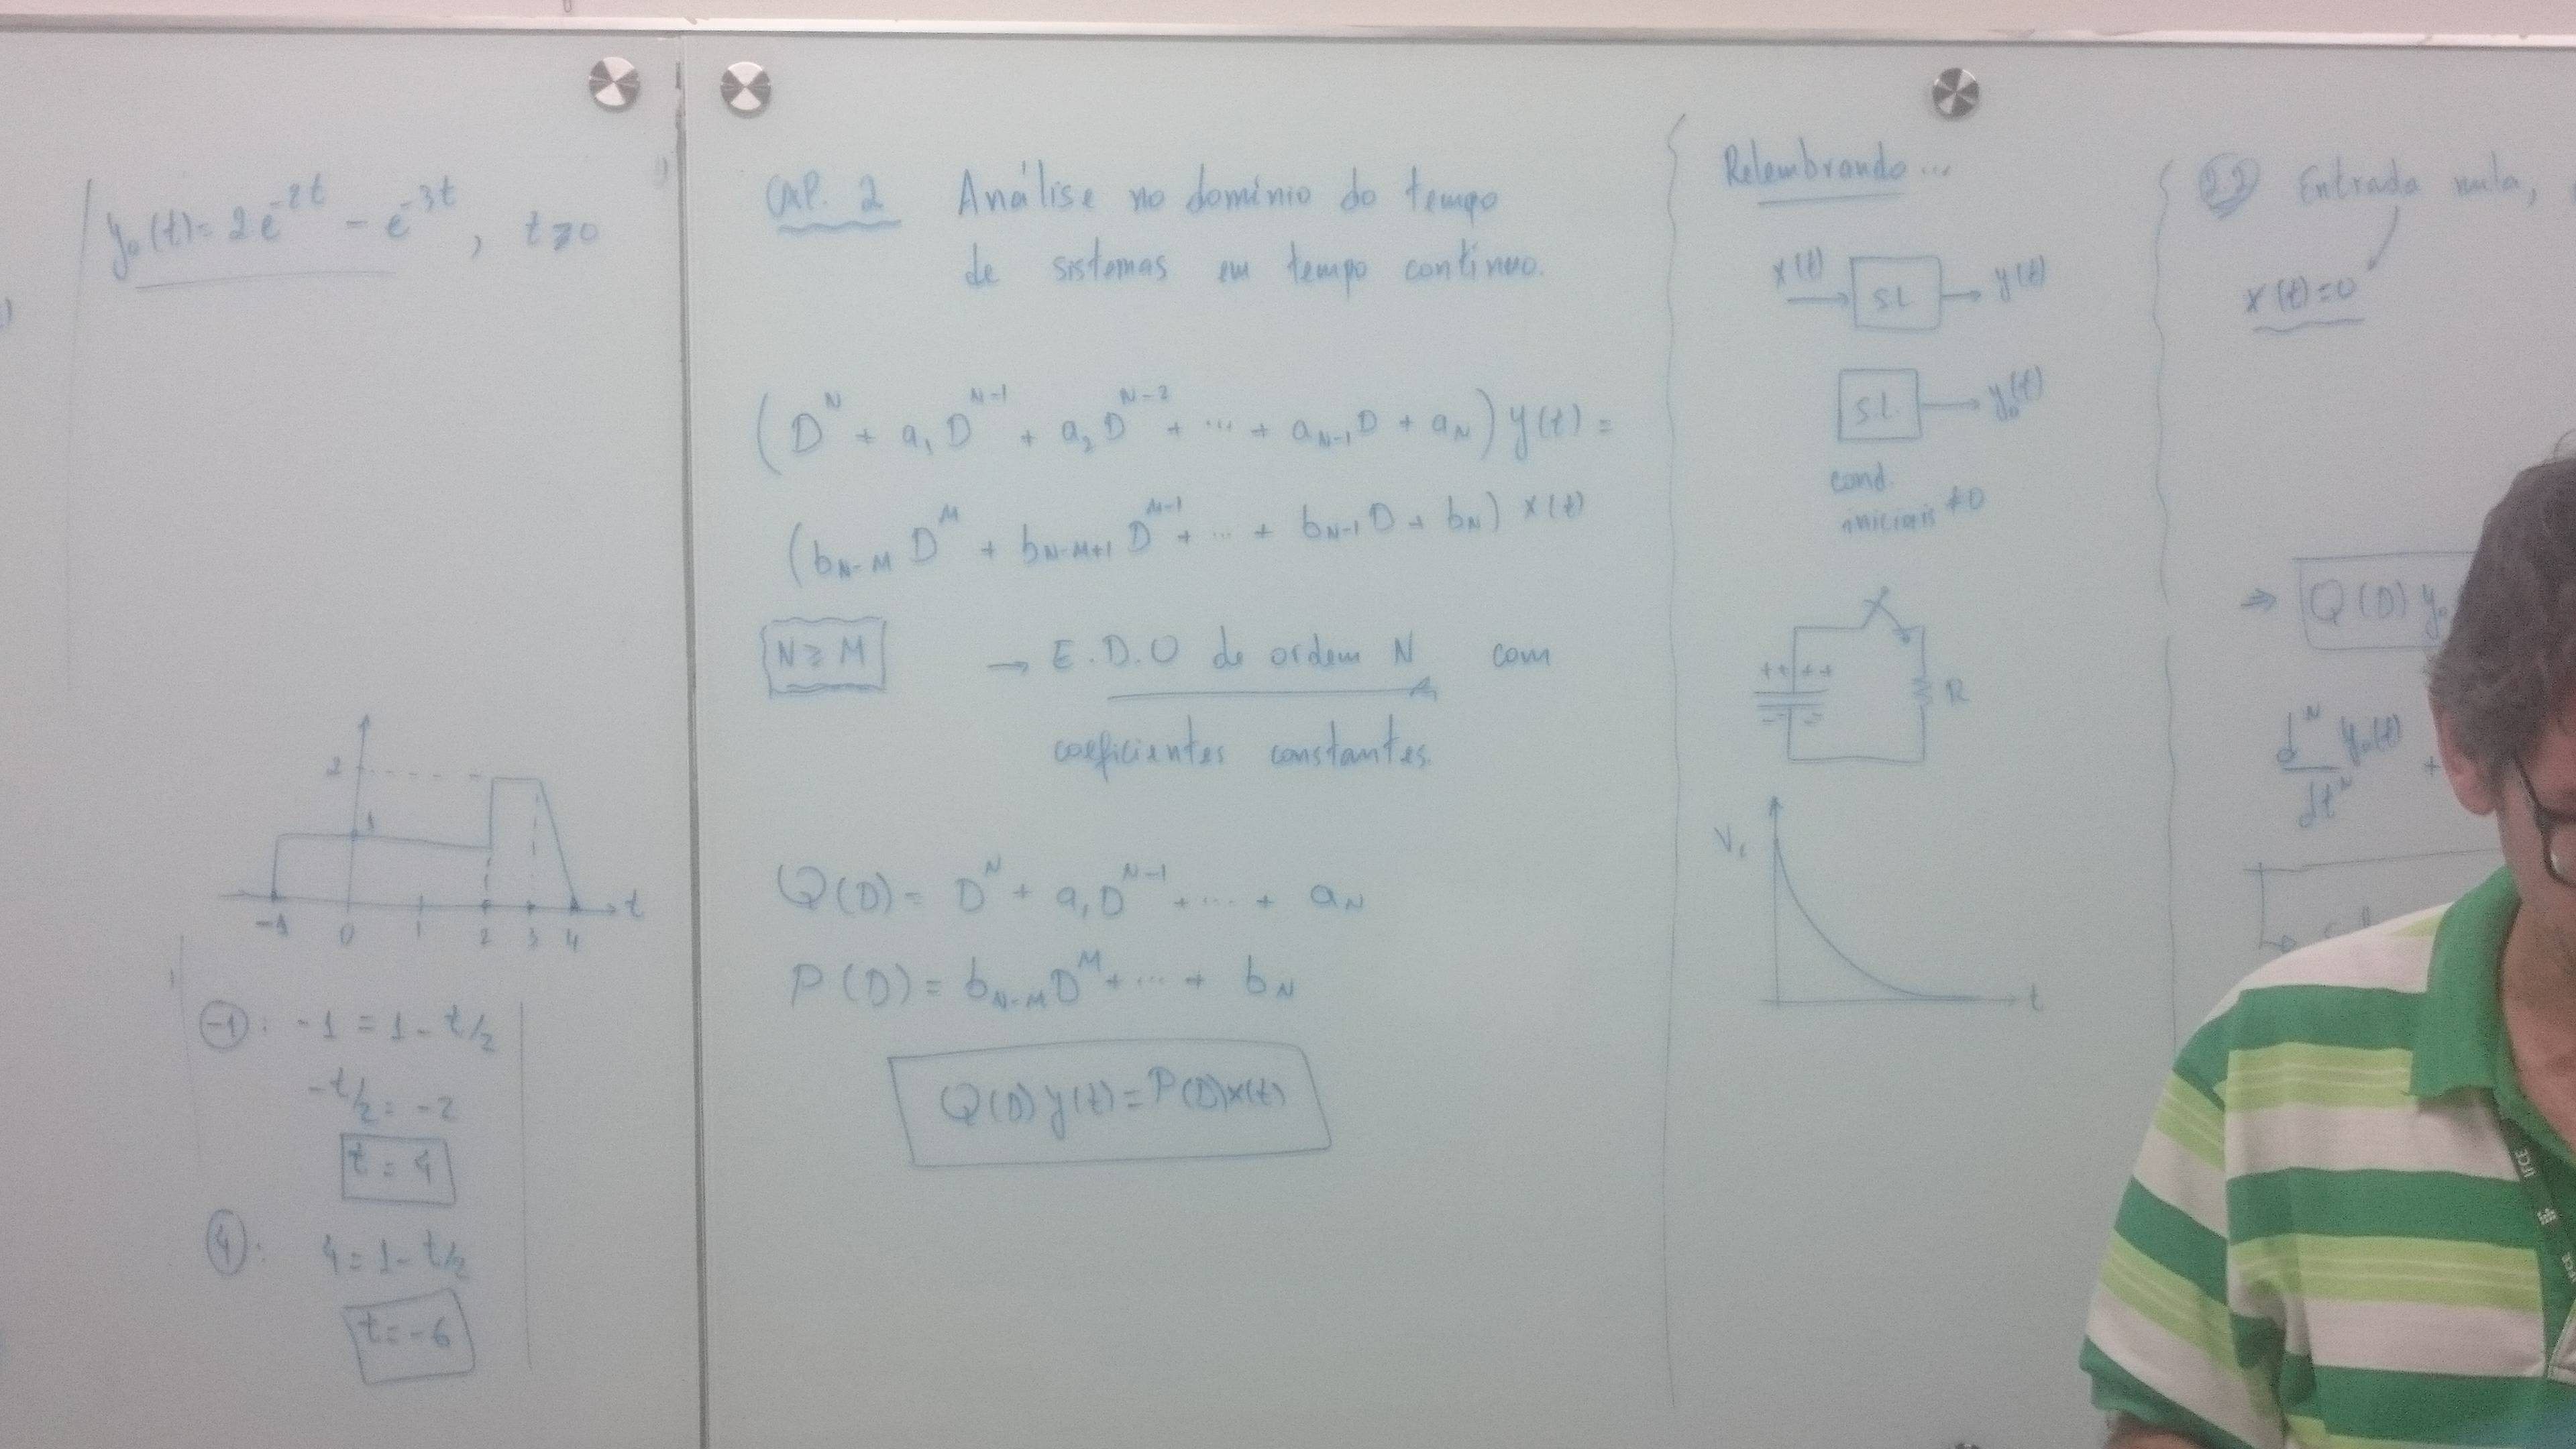 y₀(t) = 2e^{-2t} - e^{-3t}, t ≥ 0
2
1
t
-1 0 1 2 3 4
(-1): -1 = 1 - t/2
-t/2 = -2
t = 4
(4): 4 = 1 - t/2
t = -6
CAP. 2 Análise no domínio do tempo
de sistemas em tempo contínuo.
(D^N + a₁D^{N-1} + a₂D^{N-2} + ... + a_{N-1}D + a_N) y(t) =
(b_{N-M} D^M + b_{N-M+1} D^{M-1} + ... + b_{N-1}D + b_N) x(t)
N ≥ M → E.D.O de ordem N com
coeficientes constantes.
Q(D) = D^N + a₁D^{N-1} + ... + a_N
P(D) = b_{N-M}D^M + ... + b_N
Q(D) y(t) = P(D) x(t)
Relembrando...
x(t) → S.L → y(t)
S.L. → y₀(t)
cond.
iniciais ≠ 0
++ ++
-- -
R
t
Entrada nula,
x(t) = 0
⇒ Q(D) y₀
d^N y₀(t) +
dt^N
IFCE